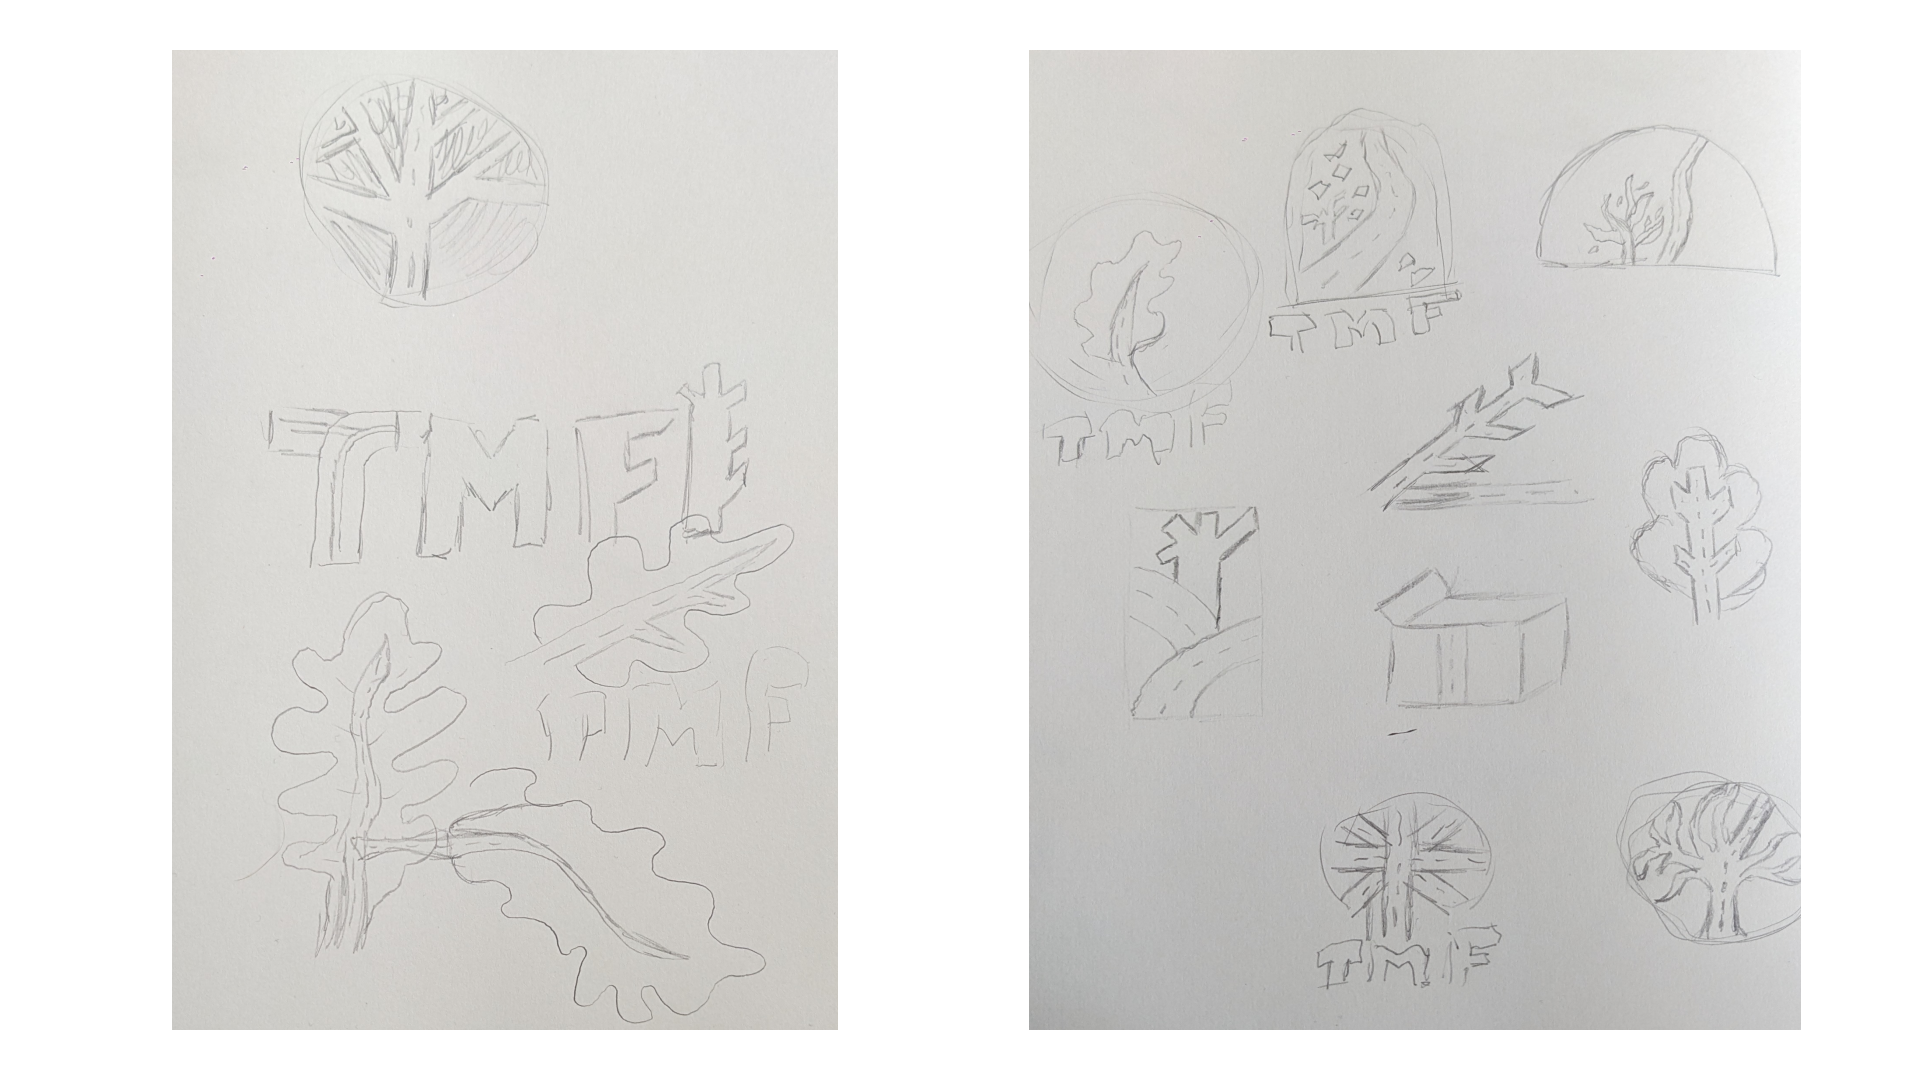 TMF
TMF
TMF
TMF
TMF